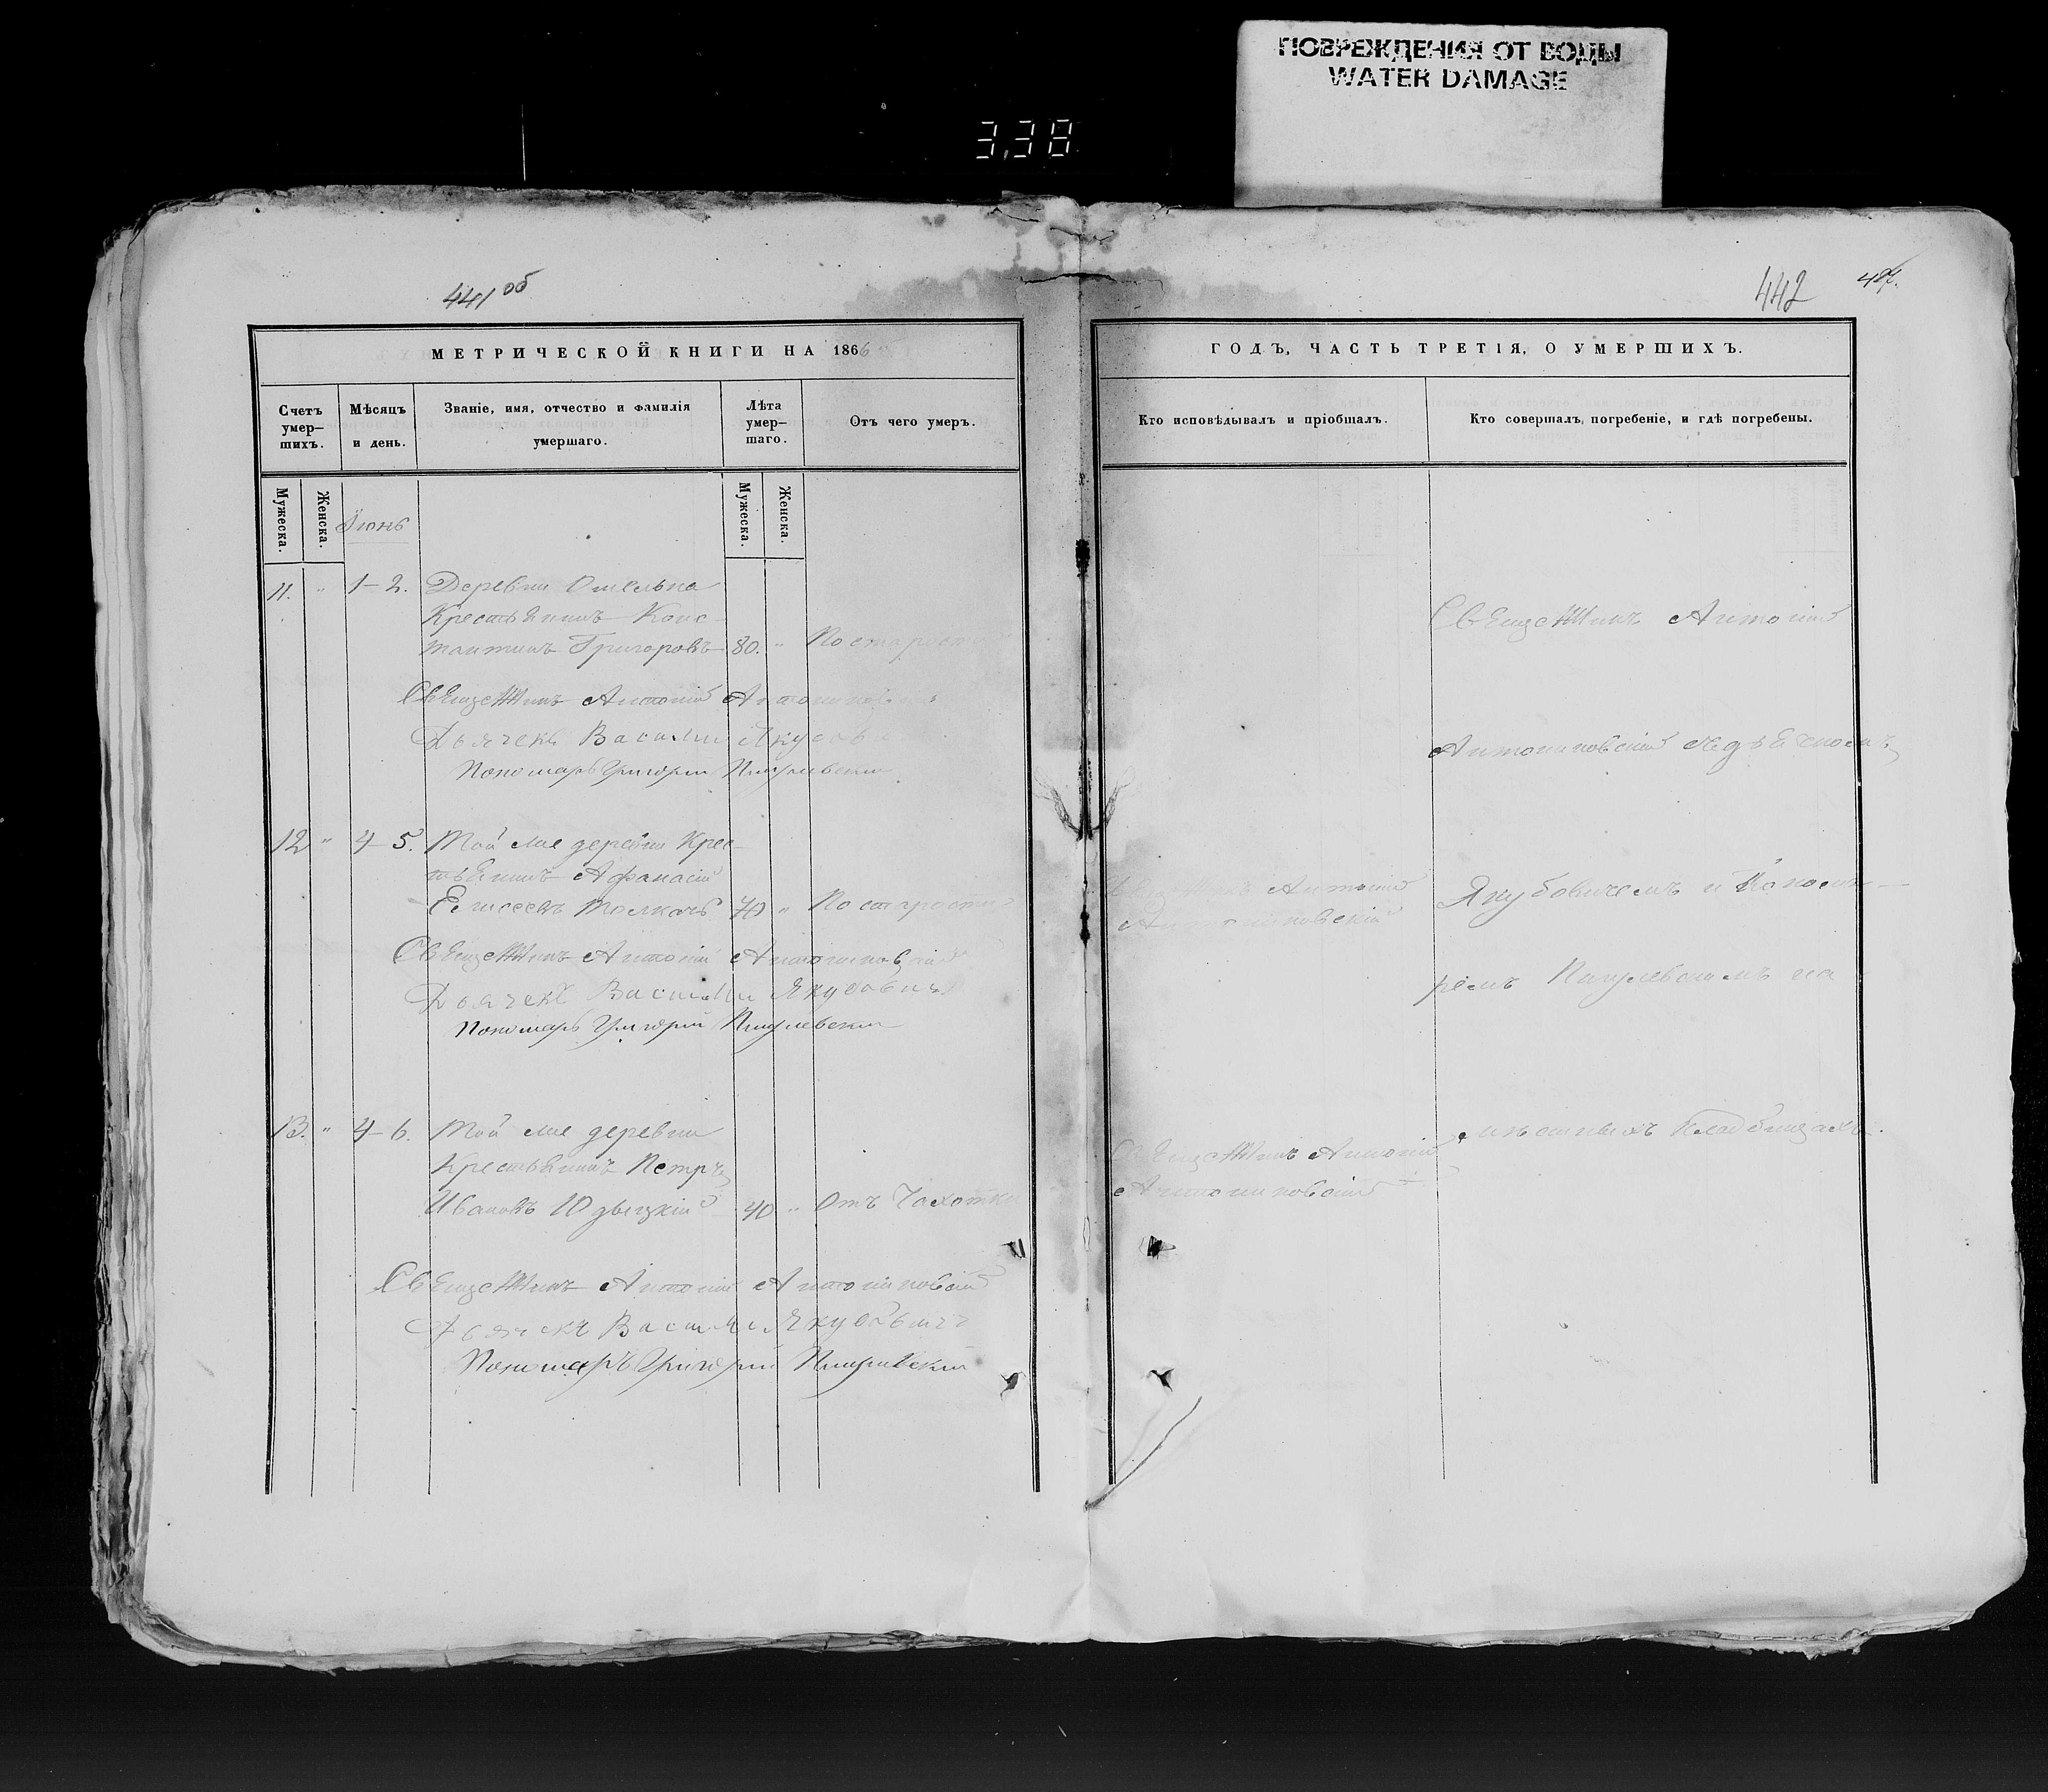 ПОВРЕЖДЕНИЯ ОТ ВОДЫ
WATER DAMAGE
3,38
441 об
МЕТРИЧЕСКОЙ КНИГИ НА 1866
Счетъ умер–шихъ.
Мѣсяцъ и день.
Званіе, имя, отчество и фамилія умершаго.
Лѣта умер–шаго.
Отъ чего умеръ.
Мужеска.
Женска.
Мужеска.
Женска.
Іюнь
11. " 1–2. Деревни
Крестьянинъ Конс–
тантинъ Григоровъ 80. " По старости
Священникъ Антоній
Дьячекъ Василій
Пономарь Григорій
12 " 4–5. Той же деревни Крес–
тьянинъ Афанасій
Елисеевъ Толкачъ 70 " По старости
Священникъ Антоній Антониновскій
Дьячекъ Василій Якубовичъ
Пономарь Григорій
13. " 4–6. Той же деревни
Крестьянинъ Петръ
Ивановъ 40 " Отъ Чахотки
Священникъ Антоній Антониновскій
Дьячекъ Василій Якубовичъ
Пономаръ Григорій
442
ГОДЪ, ЧАСТЬ ТРЕТІЯ, О УМЕРШИХЪ.
Кто исповѣдывалъ и пріобщалъ.
Кто совершалъ погребеніе, и гдѣ погребены.
Священникъ Антоній
Антониновскій
Священникъ Антоній
Антониновскій
Священникъ Антоній
Антониновскій съ дьячкомъ
Якубовичемъ и Понома–
ремъ на
мѣстныхъ кладбищахъ.